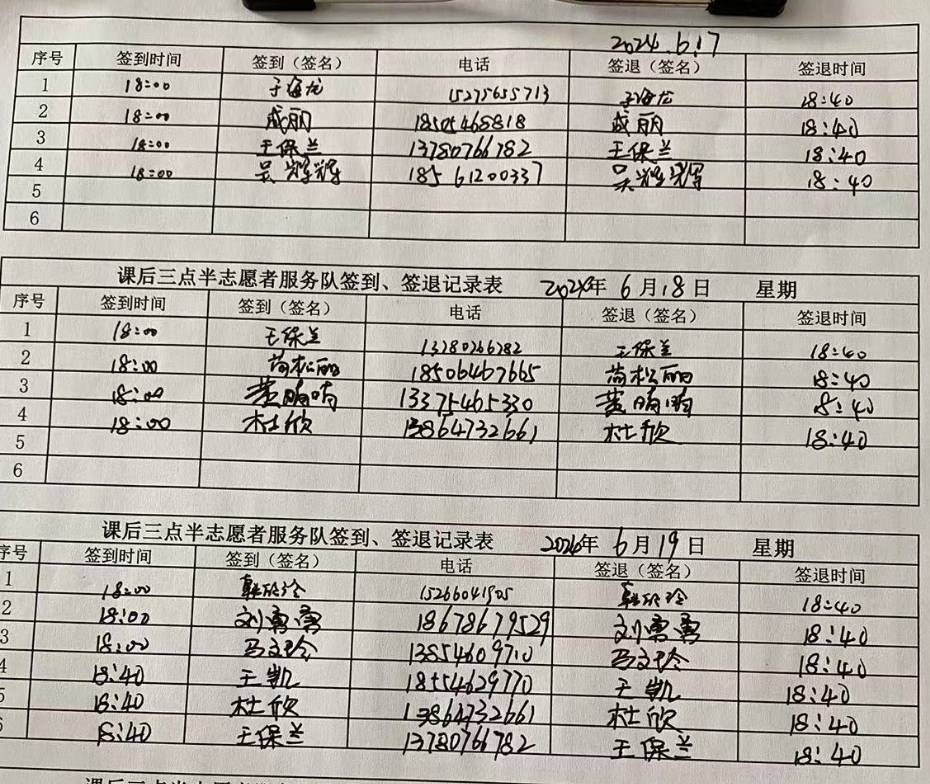 2024.6.17
序号 签到时间 签到（签名） 电话 签退（签名） 签退时间
1 18:00 于海龙 15275655713 于海龙 18:40
2 18:00 成丽 18505468818 成丽 18:40
3 18:00 王保兰 13780766782 王保兰 18:40
4 18:00 吴辉辉 18561200337 吴辉辉 18:40
5
6
课后三点半志愿者服务队签到、签退记录表 2024年 6月18日 星期
序号 签到时间 签到（签名） 电话 签退（签名） 签退时间
1 18:00 王保兰 13780766782 王保兰 18:40
2 18:00 苟松丽 18506467665 苟松丽 18:40
3 18:00 黄 13375465330 黄 18:40
4 18:00 杜欣 13864732661 杜欣 18:40
5
6
课后三点半志愿者服务队签到、签退记录表 2024年 6月19日 星期
序号 签到时间 签到（签名） 电话 签退（签名） 签退时间
1 18:00 15266041905 18:40
2 18:00 刘勇勇 18678679529 刘勇勇 18:40
3 18:00 马文玲 13854609710 马文玲 18:40
4 18:40 王凯 18554629770 王凯 18:40
5 18:40 杜欣 13864732661 杜欣 18:40
6 18:40 王保兰 13780766782 王保兰 18:40